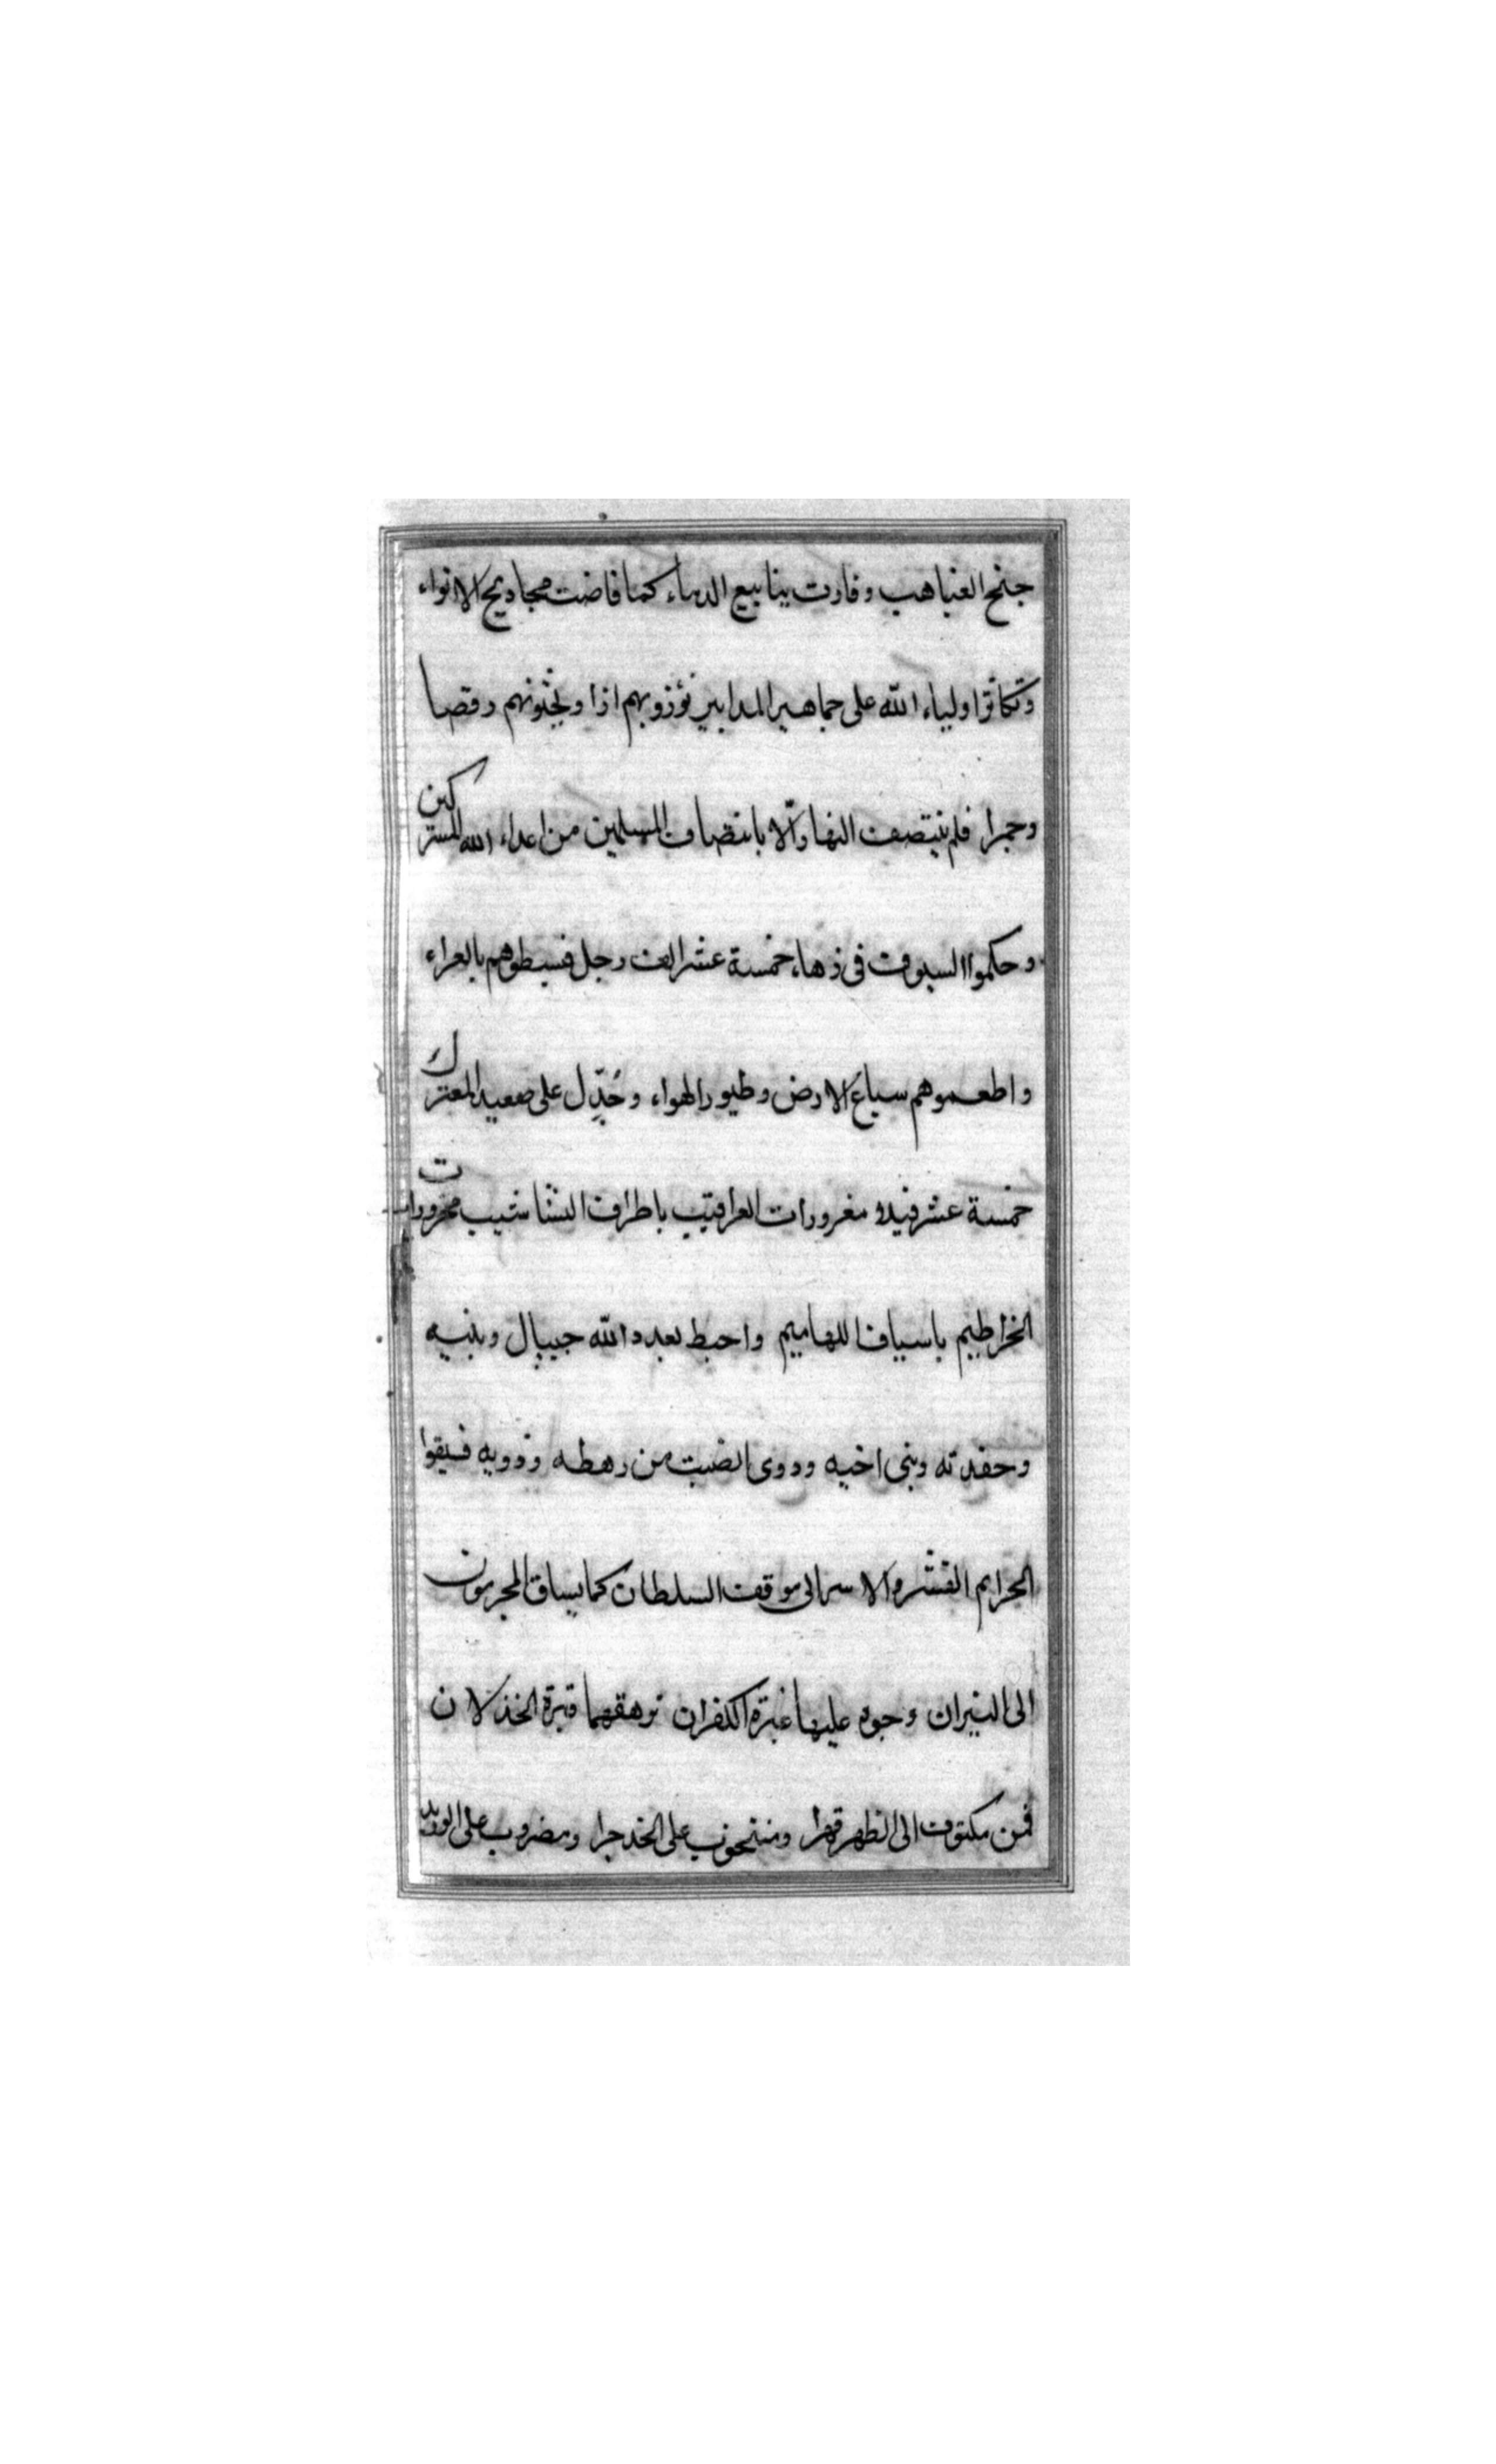 جنح الغياهب وفارت ينابيع الدماء كما فاضت مجاديح الانواء
وتكاثر اولياء الله على جماهير المدابير تؤزوبهم ازا ويجثونهم وقصا
وحمزا فلم ينتصف النهار الا بانتصاف المسلمين من اعداء الله المشركين
وحكموا السيوف فى زهاء خمسة عشر الف رجل فبسطوهم بالعراء
واطعموهم سباع الارض وطيور الهواء وجُدِّل على صعيد المعترك
خمسة عشر فيلا مغرورات العراقيب باطراف النشاشيب محزورات
الخراطيم باسياف اللهاميم واحيط بعدو الله جيبال وبنيه
وحفدته وبنى اخيه وذوى الصيت من رهطه وذويه فسيقوا
بحرايم القسر والاسر الى موقف السلطان كما يساق المجرمون
الى النيران وجوه عليها غبرة الكفران ترهقهما قترة الخذلان
فمن مكتوف الى الظهر قهرا ومسحوب على الخد جرا ومضروب على الوريد